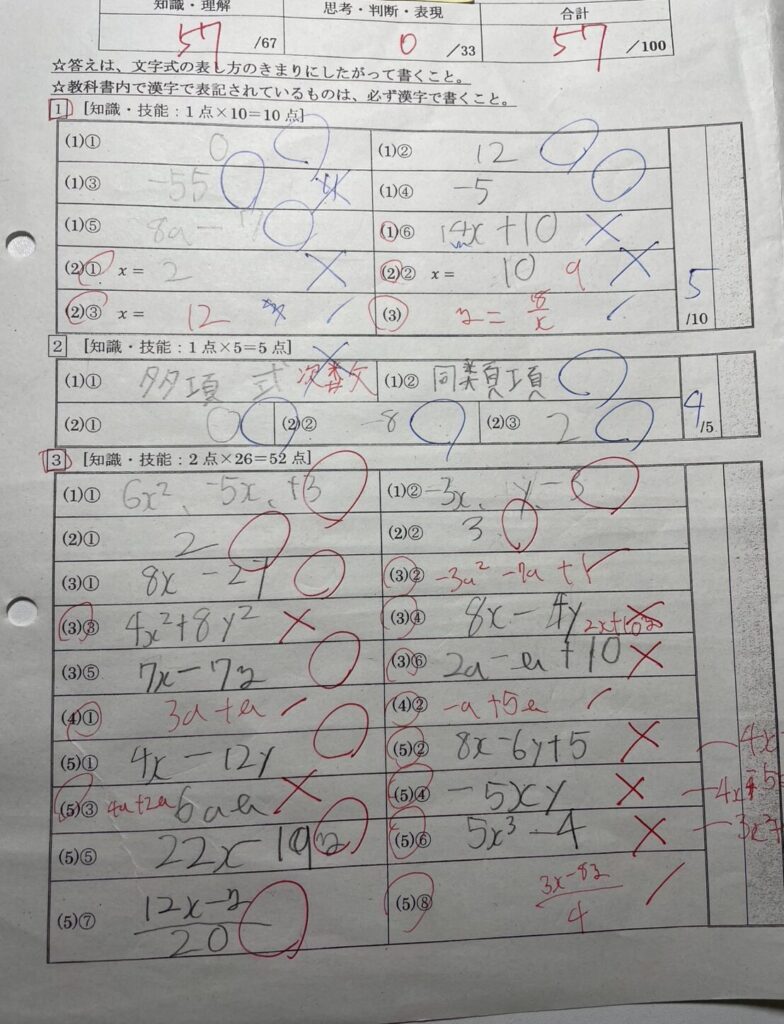 知識・理解 思考・判断・表現 合計
57 /67 0 /33 57 /100
☆答えは、文字式の表し方のきまりにしたがって書くこと。
☆教科書内で漢字で表記されているものは、必ず漢字で書くこと。
1 [知識・技能:1点×10=10点]
(1)① 0 (1)② 12
(1)③ -55 (1)④ -5
(1)⑤ 8a- (1)⑥ 14x+10
(2)① x= 2 (2)② x= 10 9
(2)③ x= 12 (3) y=8/x
5 /10
2 [知識・技能:1点×5=5点]
(1)① 多項式 次数 (1)② 同類項
(2)① 0 (2)② -8 (2)③ 2
4 /5
3 [知識・技能:2点×26=52点]
(1)① 6x²、-5x、+3 (1)② -3x、y、-5
(2)① 2 (2)② 3
(3)① 8x-2y (3)② -3a²-7a+1
(3)③ 4x²+8y² (3)④ 8x-4y 2x+10y
(3)⑤ 7x-7y (3)⑥ 2a-a+10
(4)① 3a+a (4)② -a+5a
(5)① 4x-12y (5)② 8x-6y+5
(5)③ 4a+2a 6aa (5)④ -5xy
(5)⑤ 22x-19y (5)⑥ 5x³-4
(5)⑦ 12x-y/20 (5)⑧ 3x-8y/4